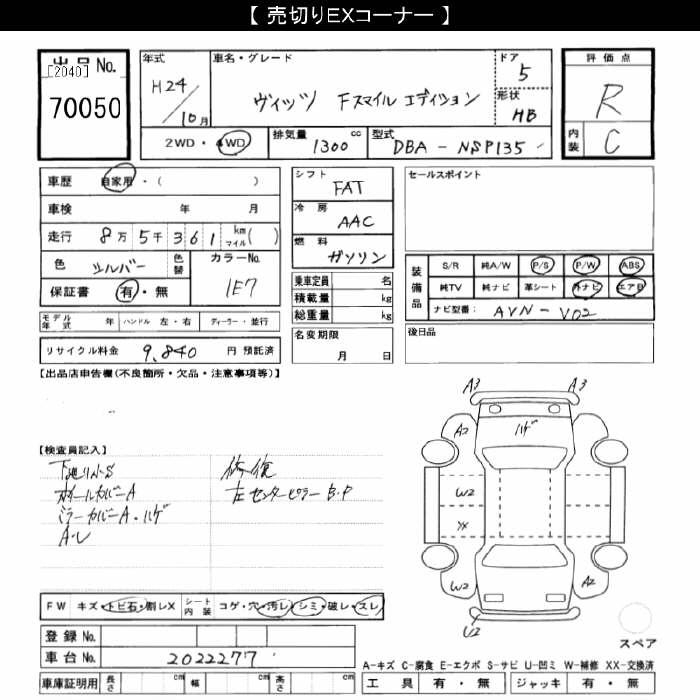 【 売切りEXコーナー 】
出品No.
[2040]
70050
年式
H24/10月
車名・グレード
ヴィッツ Fスマイルエディション
ドア
5
形状
HB
評価点
R
内装
C
2WD・4WD
排気量
1300 cc
型式
DBA-NSP135
車歴 自家用・( )
車検 年 月
走行 8万5千361 km マイル( )
色 シルバー 色替 カラーNo. 1E7
保証書 有・無
モデル年式 年 ハンドル 左・右 ディーラー・並行
リサイクル料金 9,840 円 預託済
シフト
FAT
冷房
AAC
燃料
ガソリン
乗車定員 名
積載量 kg
総重量 kg
名変期限
月 日
セールスポイント
装備品
S/R 純A/W P/S P/W ABS
純TV 純ナビ 革シート 外ナビ エアB
ナビ型番: AVN-V02
後日品
【出品店申告欄(不良箇所・欠品・注意事項等)】
【検査員記入】
下廻りハS
ホイールカバーA
ミラーカバーA・ハゲ
A・U
修復
左センターピラーB・P
A3 A3
A2 ハゲ
W2
XX
W2 A2
U2
スペア
FW キズ・トビ石・割レX シート内装 コゲ・穴・汚レ・シミ・破レ・スレ
登録No.
車台No. 2022277
車庫証明用 長さ cm 幅 cm 高さ cm
A-キズ C-腐食 E-エクボ S-サビ U-凹ミ W-補修 XX-交換済
工具 有・無 ジャッキ 有・無